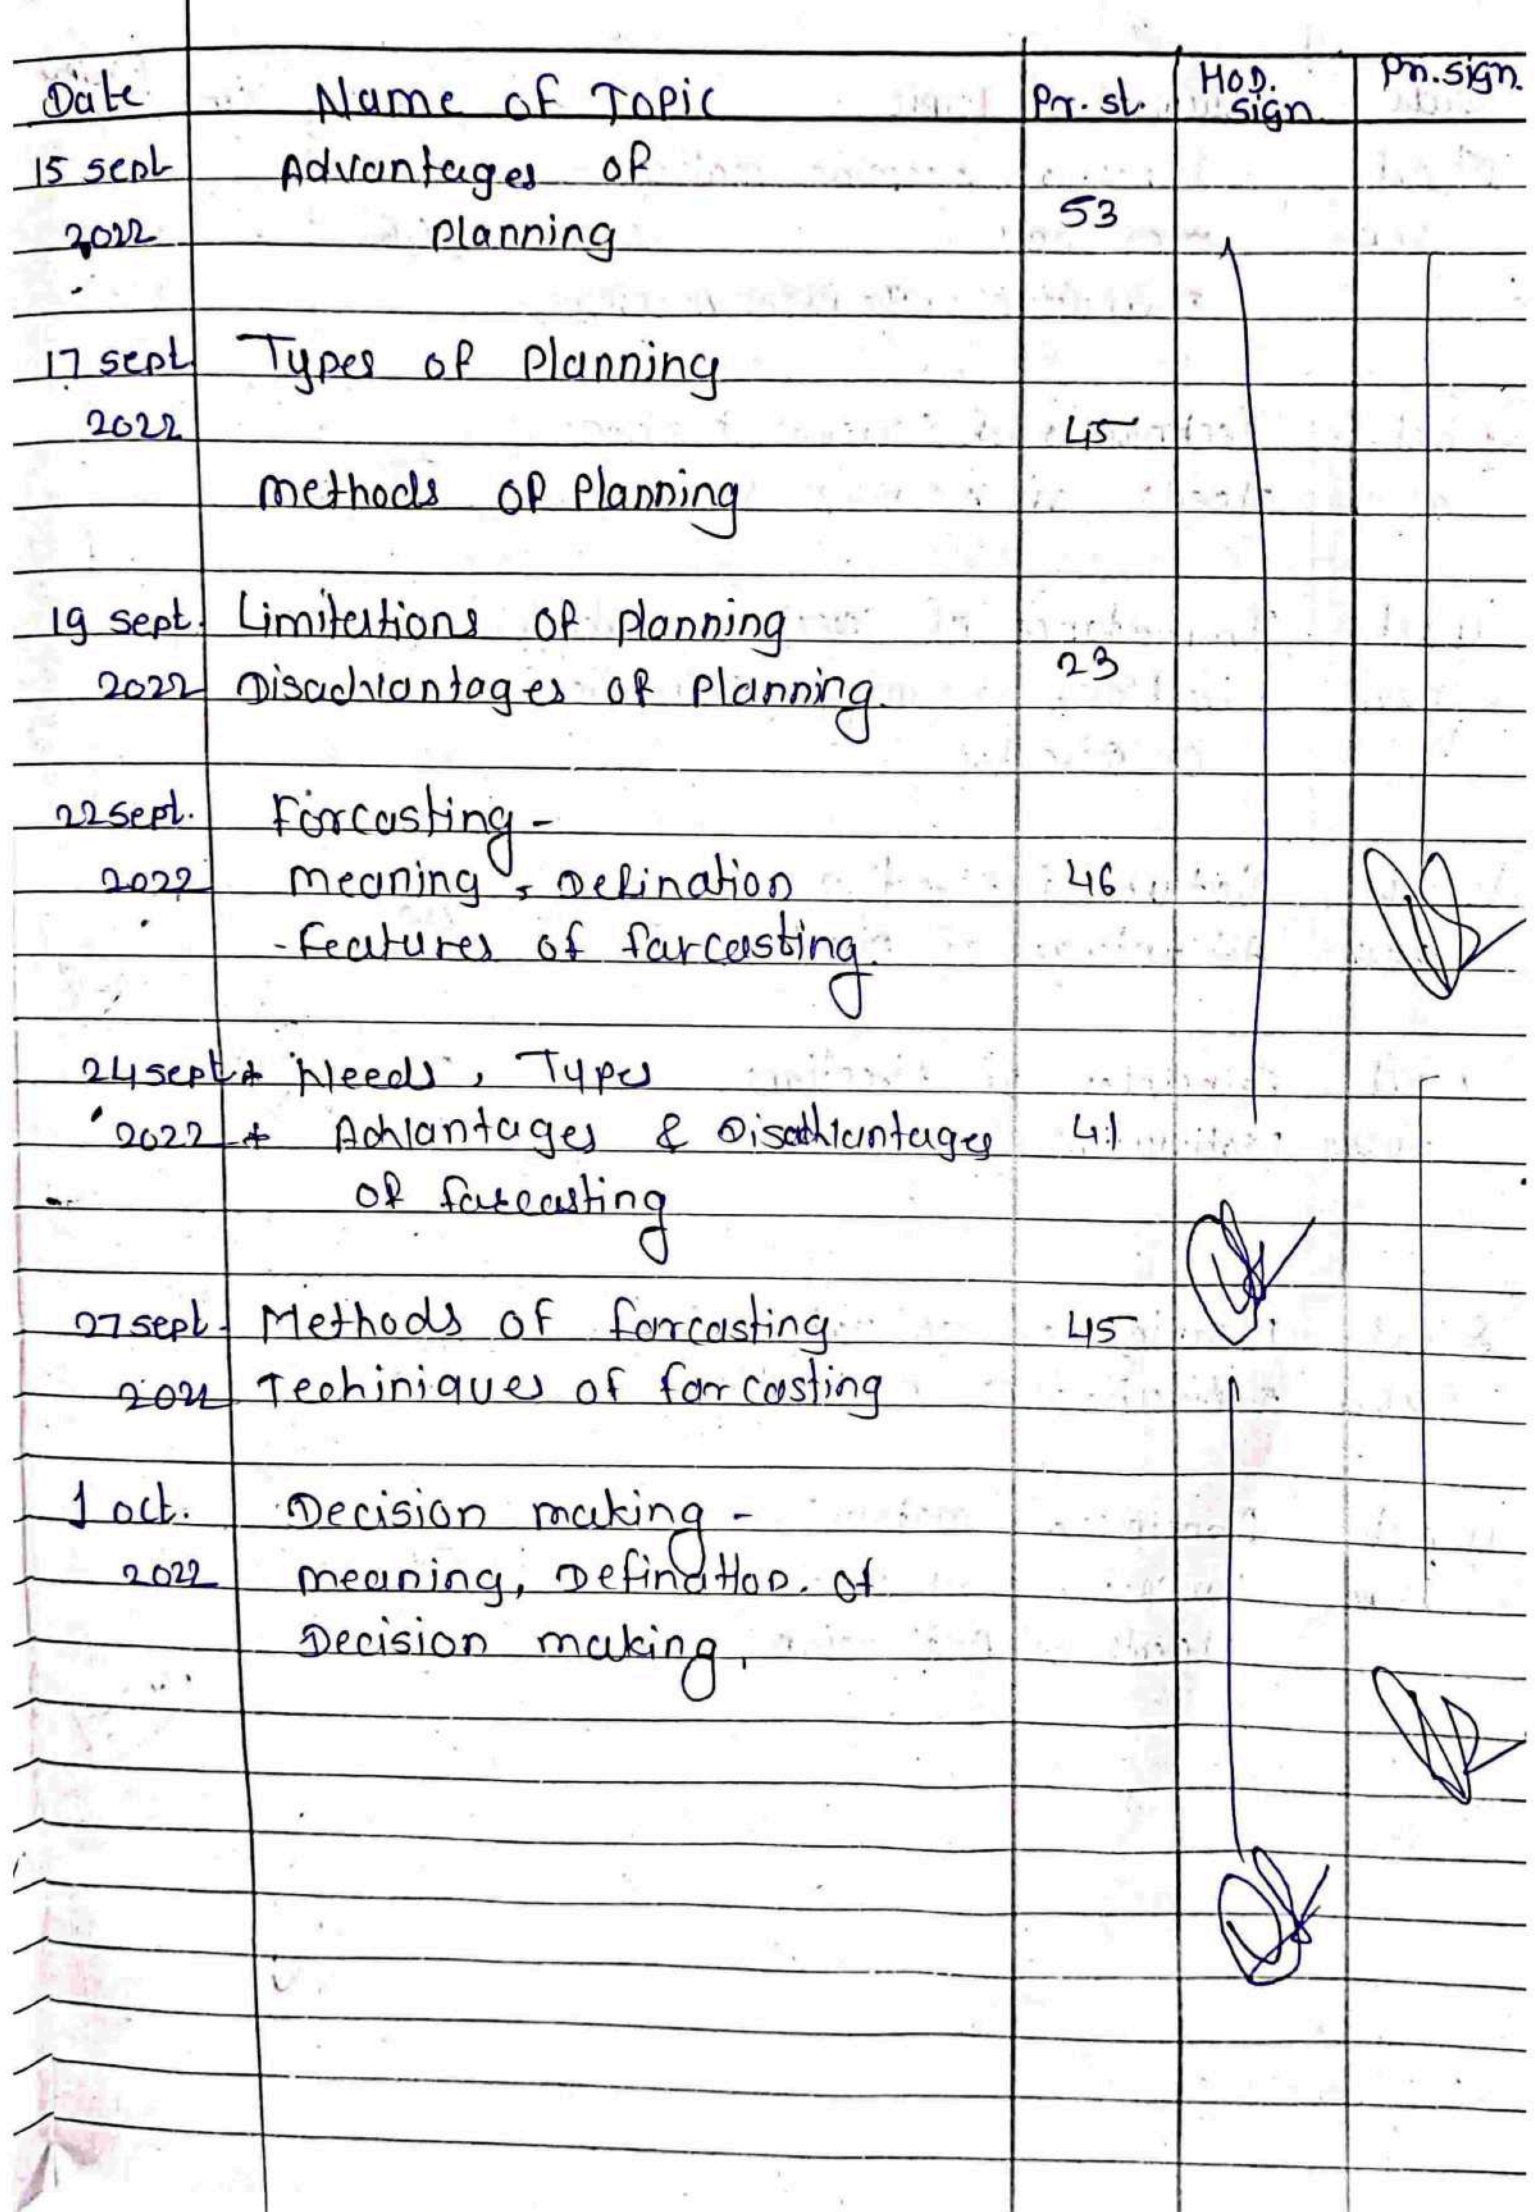 Date Name of Topic Pr. st. HOD. Sign Pn. Sign.
15 sept Advantages of
2022 planning 53
17 sept Types of Planning
2022 45
methods of Planning
19 sept. Limitations of planning
2022 Disadvantages of Planning. 23
22 sept. Forcasting -
2022 meaning, Defination 46
- Features of farcasting.
24 sept * Needs, Types
2022 * Advantages & Disadvantages 41
of farcasting
27 sept. Methods of forcasting 45
2022 Techiniques of forcasting
1 oct. Decision making -
2022 meaning, Defination. of
Decision making.